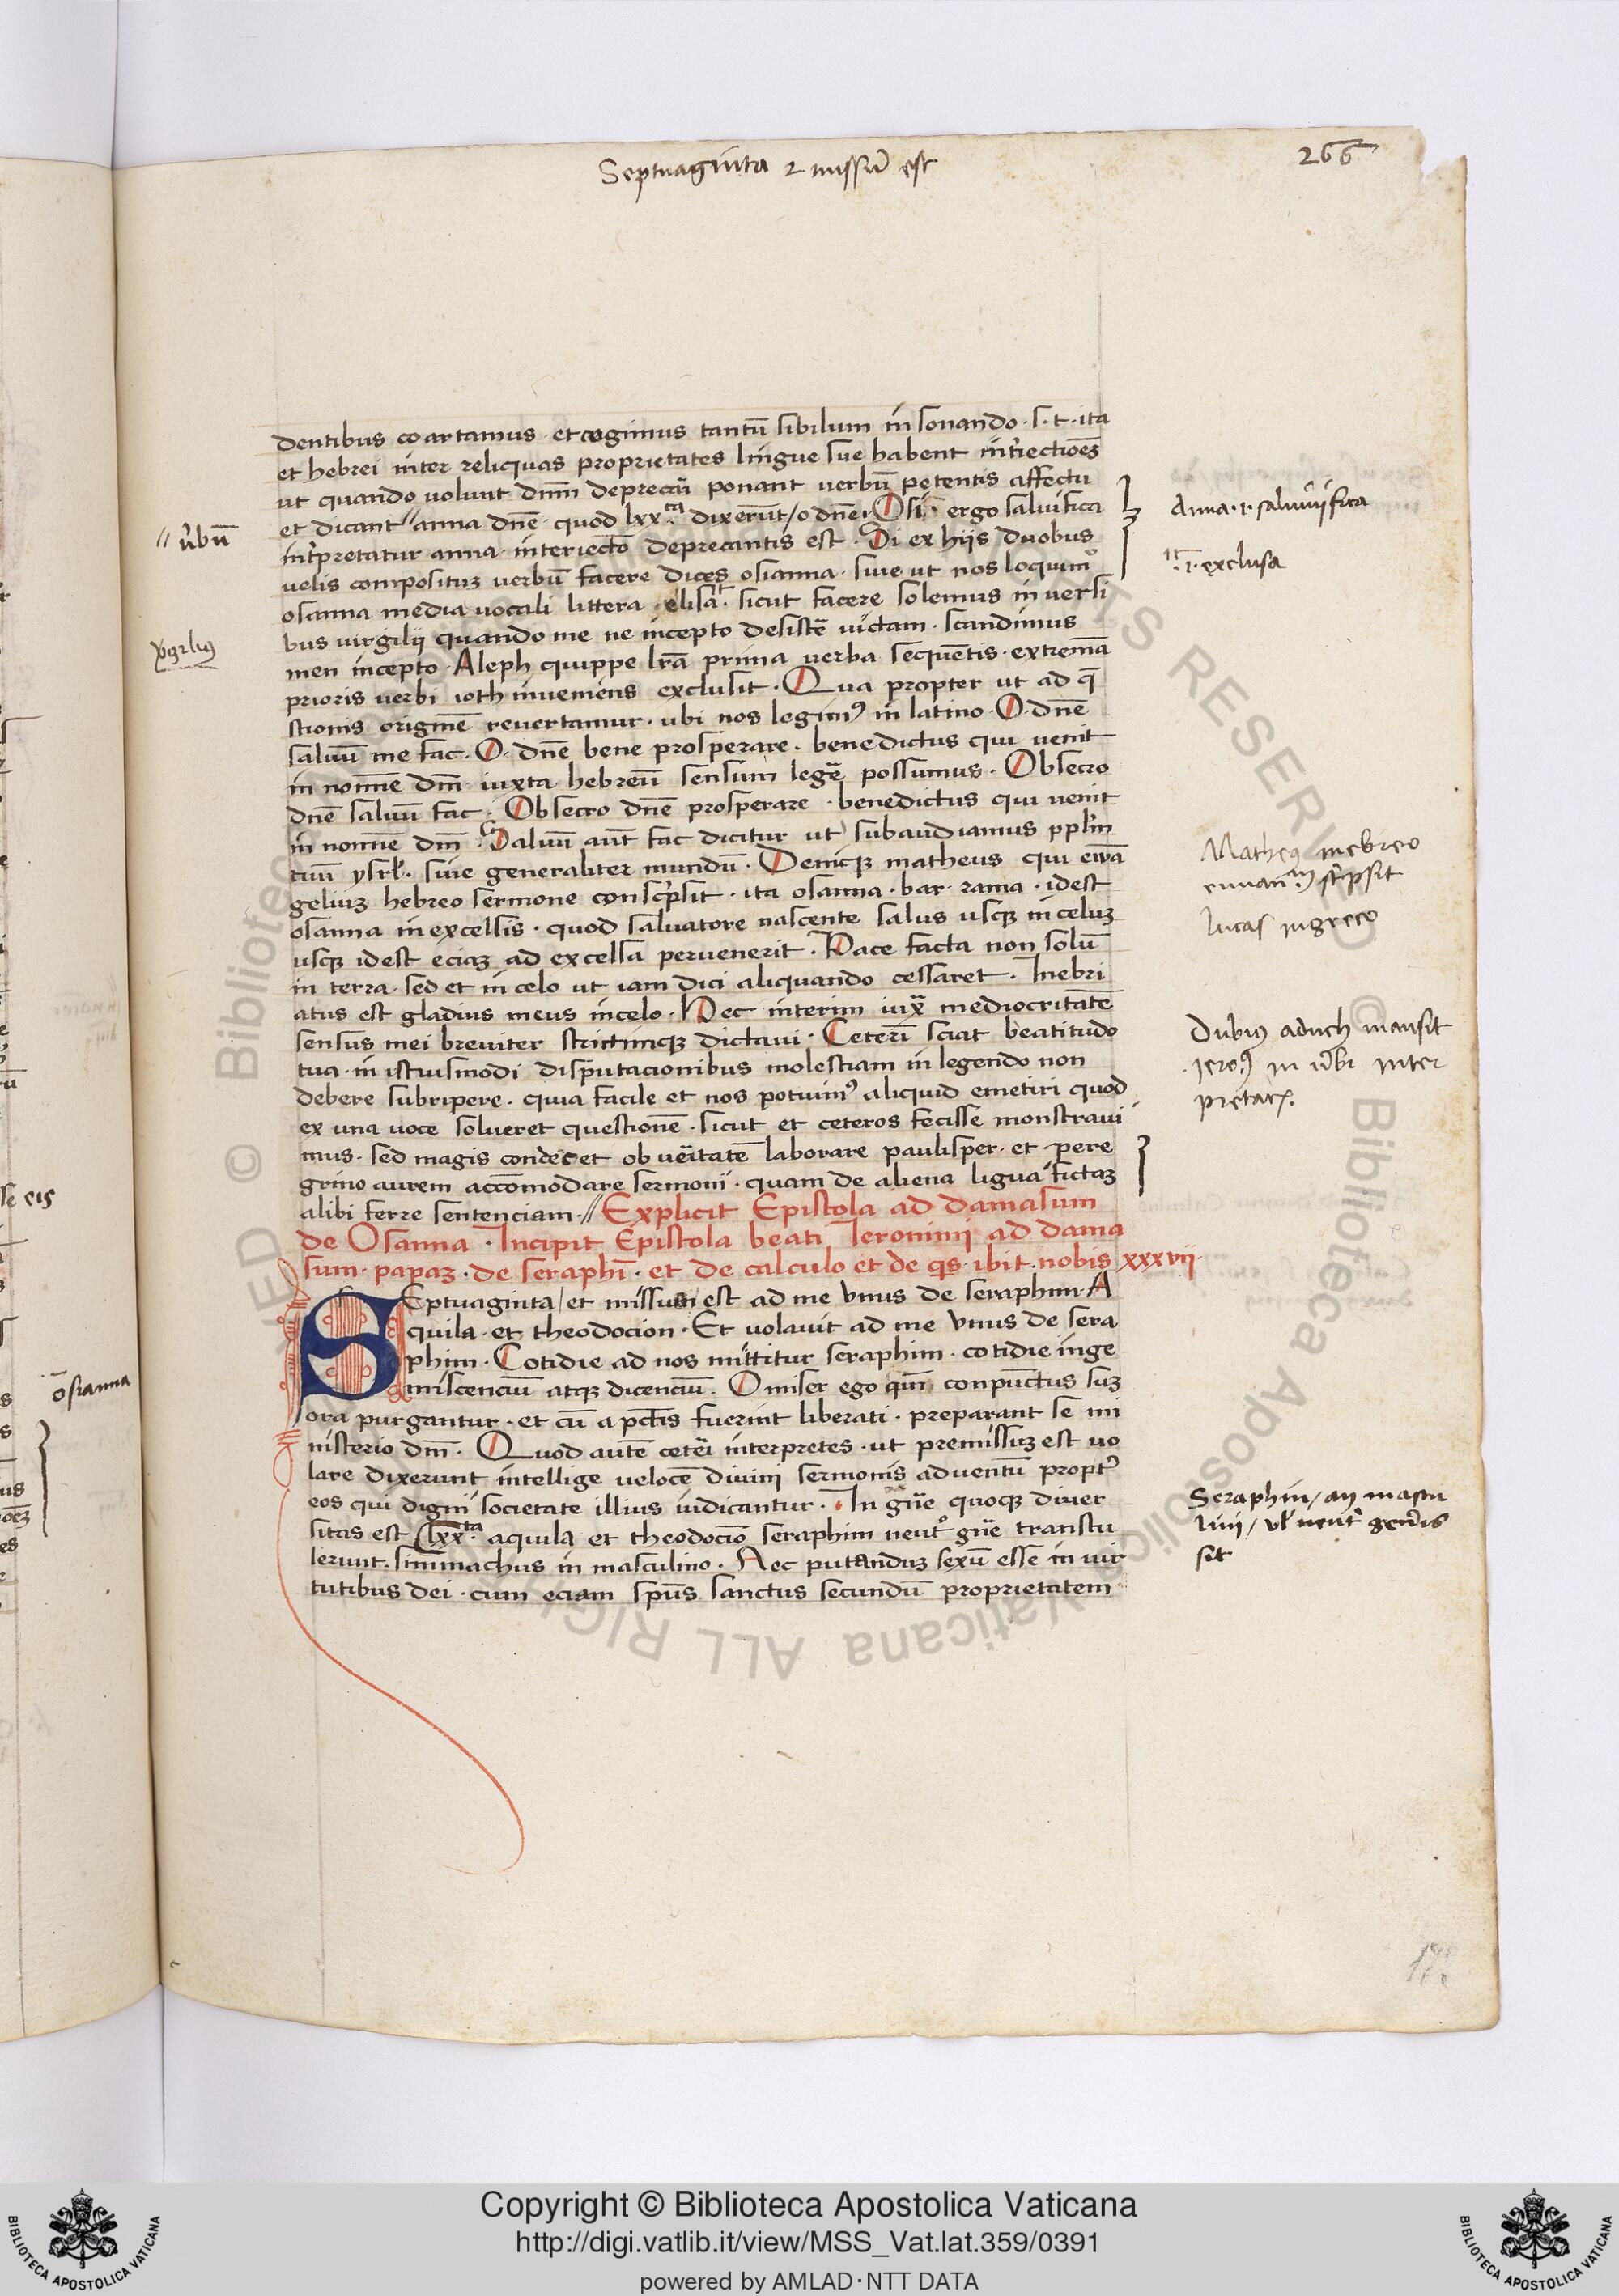 Septuaginta ⁊ missū est
266
dentibus coartamus · et cogimus tantū sibilum in sonando · s · t · ita
et hebrei inter reliquas proprietates lingue sue habent int̄iectiōes
ut quando uolunt dn̄m deprecari ponant uerbū petentis affectu
et dicant // anna dn̄e · quod lxx.ta dixerūt / o dn̄e · Osi · ergo saluifica
int̄pretatur anna · interiectō deprecantis est · Si ex hijs duobus
uelis composituꝫ uerbū facere dices osianna · siue ut nos loquimᵒ
osanna media uocali littera elisa · sicut facere solemus in uersi
bus uirgilij quando me ne incepto desistē uictam · scandimus
men incepto · Aleph quippe lr̄a prima uerba sequentis · extremā
prioris uerbi ioth inueniens exclusit · Qua propter ut ad q̄
stionis originē reuertamur · ubi nos legimꝰ in latino · O dn̄e
saluū me fac · O · dn̄e bene prosperare · benedictus qui uenit
in noīne dn̄i · iuxta hebreū sensum legē possumus · Obsecro
dn̄e saluū fac · Obsecro dn̄e prosperare · benedictus qui uenit
in noīne dn̄i · Saluū aūt fac dicitur ut subaudiamus pplm̄
tuū ysrl̄ · siue generaliter mundū · Deniqꝫ matheus qui ewā
geliuꝫ hebreo sermone conscp̄sit · ita osanna · bar · rama · idest
osanna in excelsis · quod saluatore nascente salus usqꝫ in celuꝫ
usqꝫ idest eciaꝫ ad excelsa peruenerit · Pace facta non solū
in terra · sed et in celo ut iam dici aliquando cessaret · Inebri
atus est gladius meus in celo · Hec interim iuxͣ mediocritatē
sensus mei breuiter strictimqꝫ dictaui · Ceterū sciat beatitudo
tua · in istiusmodi disputacionibus molestiam in legendo non
debere subripere · quia facile et nos potuimꝰ aliquid emetiri quod
ex una uoce solueret questionē · sicut et ceteros fecisse monstraui
mus · sed magis condecet ob ueritatē laborare paulisper · et pere
grino aurem accōmodare sermonii · quam de aliena ligua fictaꝫ
alibi ferre sentenciam · // Explicit Epistola ad damasum
de Osanna · Incipit Epistola beati Ieronimi ad dama
sum · papaꝫ · de seraphī · et de calculo et de q̄s · ibit · nobis xxxvii ·
SEptuaginta / et missum est ad me vnus de seraphim · A
quila · et theodocion · Et uolauit ad me vnus de sera
phim · Cotidie ad nos mittitur seraphim · cotidie inge
miscenciū atqꝫ dicenciū · O miser ego qm̄ conpunctus suꝫ
ora purgantur · et cū a pctīs fuerint liberati · preparant se mi
nisterio dn̄i · Quod autē ceteri interpretes · ut premissuꝫ est uo
lare dixerunt intellige uelocē diuini sermonis aduentū propt̄
eos qui digni societate illius iudicantur · In gn̄e quoqꝫ diuer
sitas est lxx.ta aquila et theodociō seraphim neutᵒ gn̄e transtu
lerunt · simmachus in masculino · Nec putanduꝫ sexū esse in uir
tutibus dei · cum eciam spūs sanctus secundū proprietatem
// ūbū
v̄gilius
Anna · i · saluificа
.i. exclusa
Matheꝰ in ebreo
euuan · sc̄psit
lucas in greco
Dubiꝰ aduch mansit
jeroꝰ in v̄bi inter
pretac̄.
Seraphin / an mascu
lini / vl̄ neut̄ gen̄is
sit
osianna
Copyright © Biblioteca Apostolica Vaticana
http://digi.vatlib.it/view/MSS_Vat.lat.359/0391
powered by AMLAD·NTT DATA
BIBLIOTECA APOSTOLICA VATICANA
BIBLIOTECA APOSTOLICA VATICANA